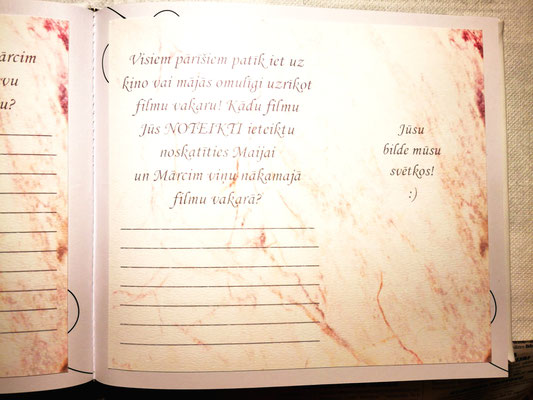 ārcim
vu
u?
Visiem pārīšiem patīk iet uz
kino vai mājās omulīgi uzrīkot
filmu vakaru! Kādu filmu
Jūs NOTEIKTI ieteiktu
noskatīties Maijai
un Mārcim viņu nākamajā
filmu vakarā?
Jūsu
bilde mūsu
svētkos!
:)